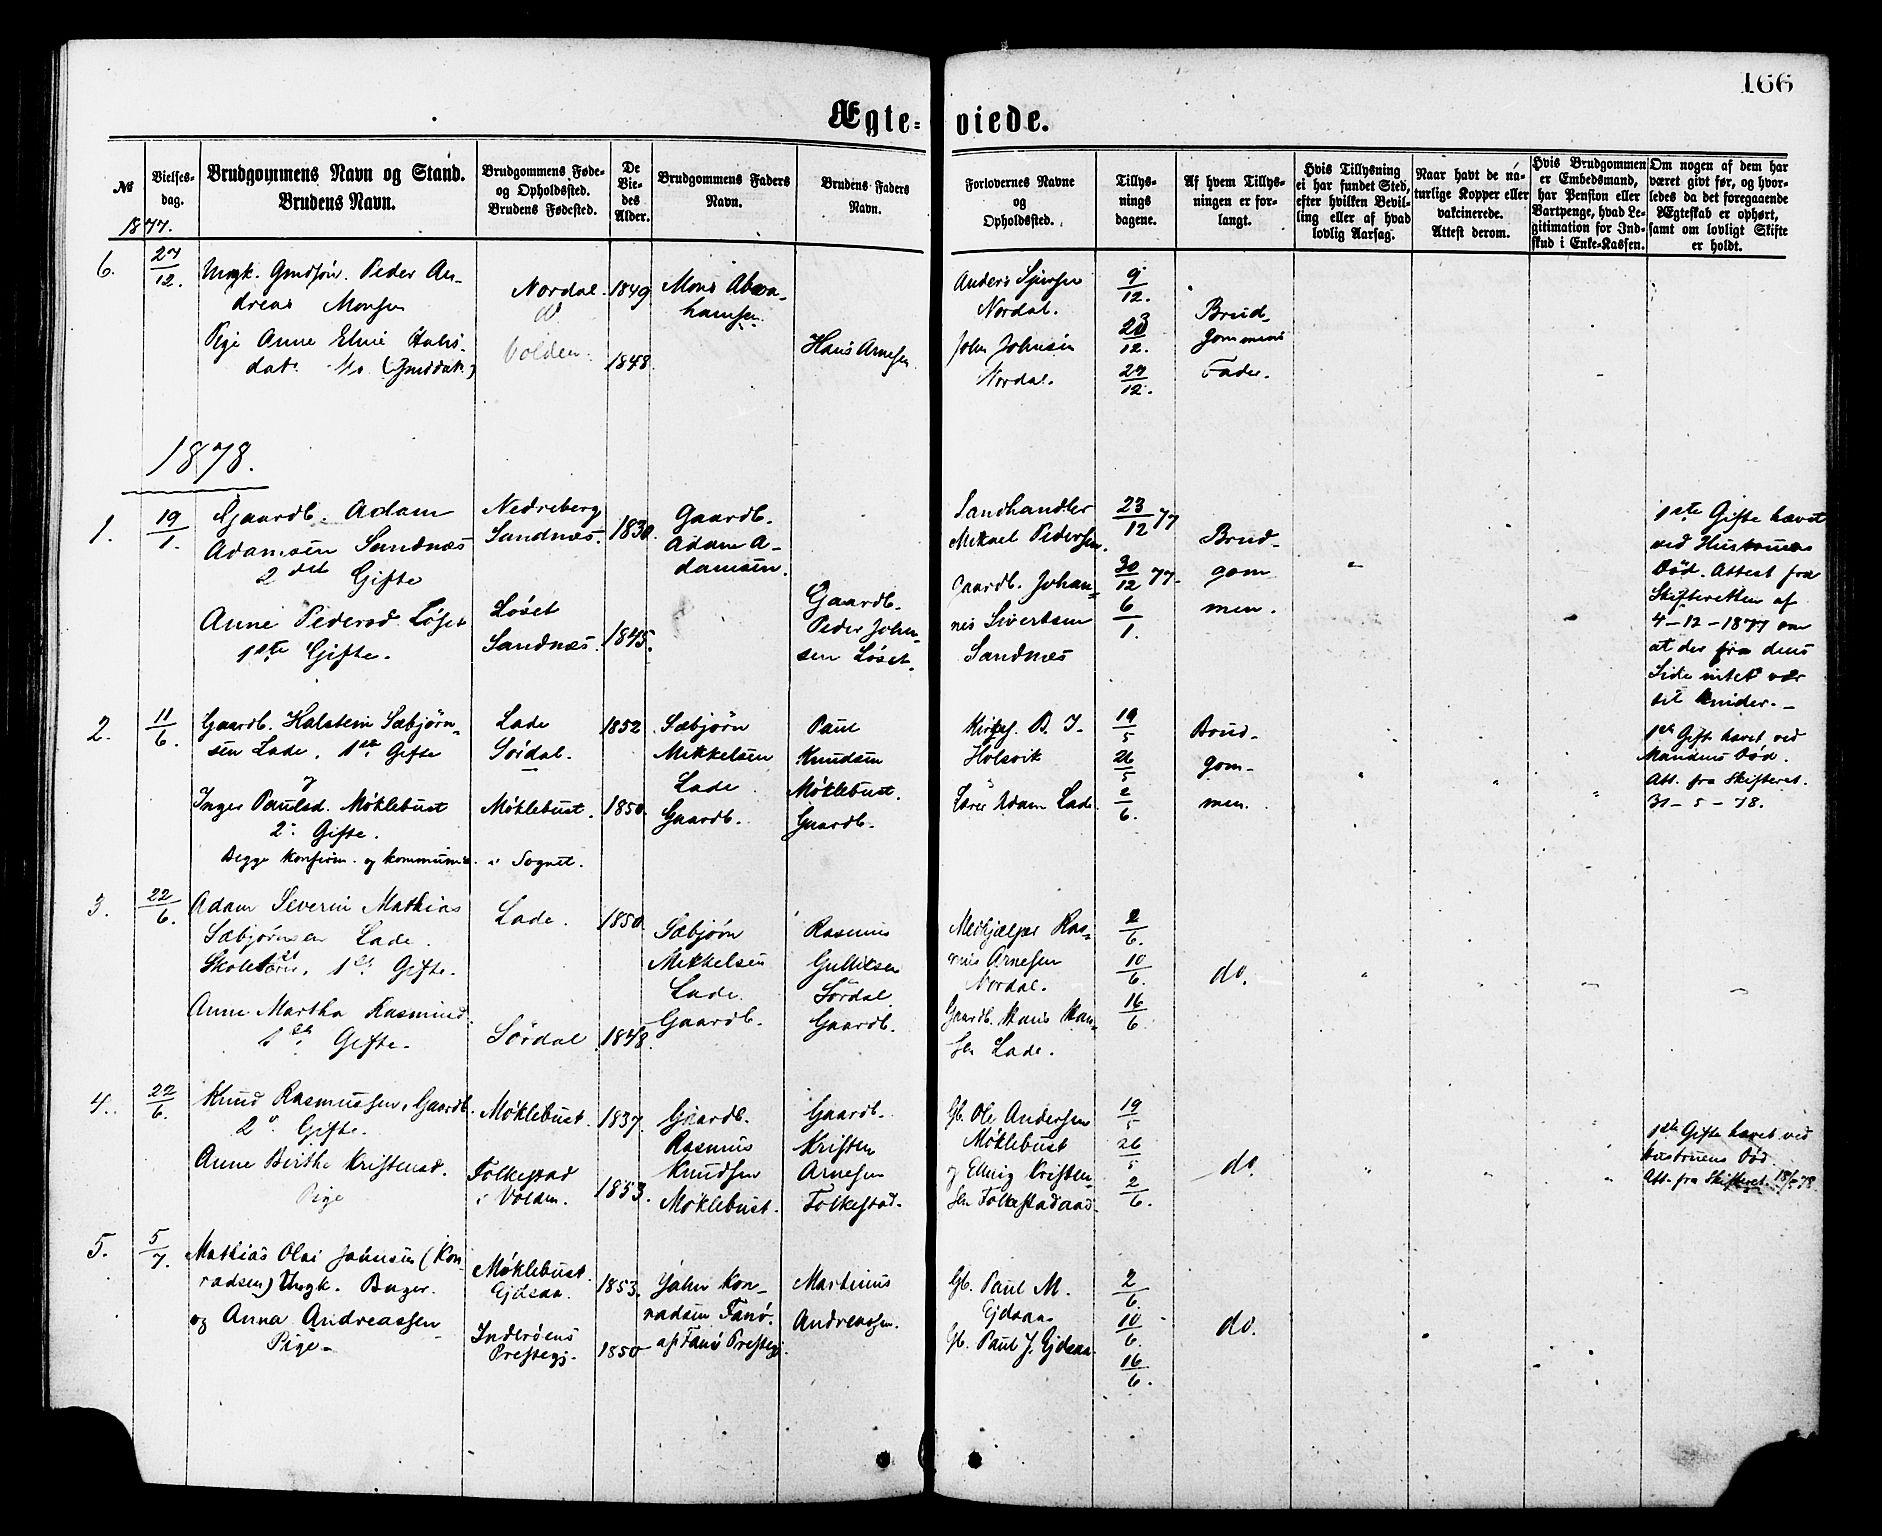 166
Ægte- viede.
№
Vielses-
dag.
Brudgommens Navn og Stand.
Brudens Navn.
Brudgommens Føde-
og Opholdssted.
Brudens Fødested.
De
Vie-
des
Alder.
Brudgommens Faders
Navn.
Brudens Faders
Navn.
Forlovernes Navne
og
Opholdssted.
Tillys-
nings
dagene.
Af hvem Tillys-
ningen er for-
langt.
Hvis Tillysning
ei har fundet Sted,
efter hvilken Bevil-
ling eller af hvad
lovlig Aarsag.
Naar havt de na-
turlige Kopper eller
vakcinerede.
Attest derom.
Hvis Brudgommen
er Embedsmand,
har Pension eller
Vartpenge, hvad Le-
gitimation for Ind-
skud i Enke-Kassen.
Om nogen af dem har
været givt før, og hvor-
ledes da det foregaaende
Ægteskab er ophørt,
samt om lovligt Skifte
er holdt.
1877.
6.
27/12.
Ungk. Gmdsøn. Peder An-
dreas Monsen
Pige Anne Eline Hans-
dat.
Nordal.
do
Volden.
1849
1848
Mons Abra-
hamsen
Hans Arnesen
Anders
Nordal.
John Johnsen
Nordal.
9/12.
23/12.
27/12.
Brud-
gommens
Fader.
1878.
1.
19/1.
Gaardb. Adam
Adamsen Sandnæs
2det Gifte
Anne Pedersd. Løset
1ste Gifte.
Nedreberg
Sandnæs.
Løset
Sandnæs.
1830.
1845.
Gaardb.
Adam A-
damsen.
Gaardb.
Peder John-
sen Løset.
Landhandler
Mikael Pedersen.
Gaardb. Johan-
nes Sivertsen
Sandnæs
23/12 77
30/12 77.
6/1.
Brud-
gom
men.
1ste Gifte hævet
ved Hustrues
Død. Attest fra
Skifteretten af
4-12-1877 om
at der fra dens
Side intet var
til Hinder.-
2.
11/6.
Gaardb. Halstein Sæbjørn-
sen Lade, 1ste Gifte
Inger Paulsd. Møklebust
2. Gifte.
Begge Konfirm. og kommunic. i Sognet.
Lade
Sørdal.
Møklebust.
1852
1850.
Sæbjørn
Mikkelsen
Lade
Gaardb.
Paul
Knudsen
Møklebust.
Gaardb.
Kirkes. B. J.
Holsvik
Lærer Adam Lade
19/5
26/5
2/6.
Brud-
gom-
men.
1ste Gifte hævet ved
Mandens Død.
Att. fra Skifteret.
31-5-78.
3.
22/6.
Adam Severin Mathias
Sæbjørnsen Lade.
Skolelærer, 1ste Gifte.
Anne Martha Rasmusd.
1ste Gifte.
Lade.
Sørdal
1850.
1848.
Sæbjørn
Mikkelsen
Lade.
Gaardb.
Rasmus
Gulliksen
Sørdal
Gaardb.
Medhjælper Ras-
mus Arnesen
Nordal.
Gaardb. Hans Han-
sen Lade.
2/6.
10/6.
16/6
do.
4.
22/6.
Knud Rasmussen, Gaardb.
2. Gifte.
Anne Birthe Kristensd.
Pige
Møklebust.
Folkestad
i Volden.
1837.
1853.
Gaardb.
Rasmus
Knudsen
Møklebust.
Gaardb.
Kristen
Arnesen
Folkestad.
Gb. Ole Andersen
Møklebust
og Elling Kristen-
sen Folkestadaas
19/5
26/5
2/6.
do.
1ste Gifte hævet ved
Hustruens Død.
Att. fra Skifteret.
5.
5/7.
Mathias Olai Johnsen (Kon-
radsen) Ungk. Bager.
og Anna Andreassen
Pige-
Møklebust.
Ejdsaa.
Inderøens
Prestegj.
1853.
1850
John Kon-
radsen Fanø.
af Fanø Prestegj.
Martinus
Andreassen.
Gb. Paul M.
Ejdsaa
Gb. Paul J. Ejdsaa
2/6.
10/6.
16/6.
do.